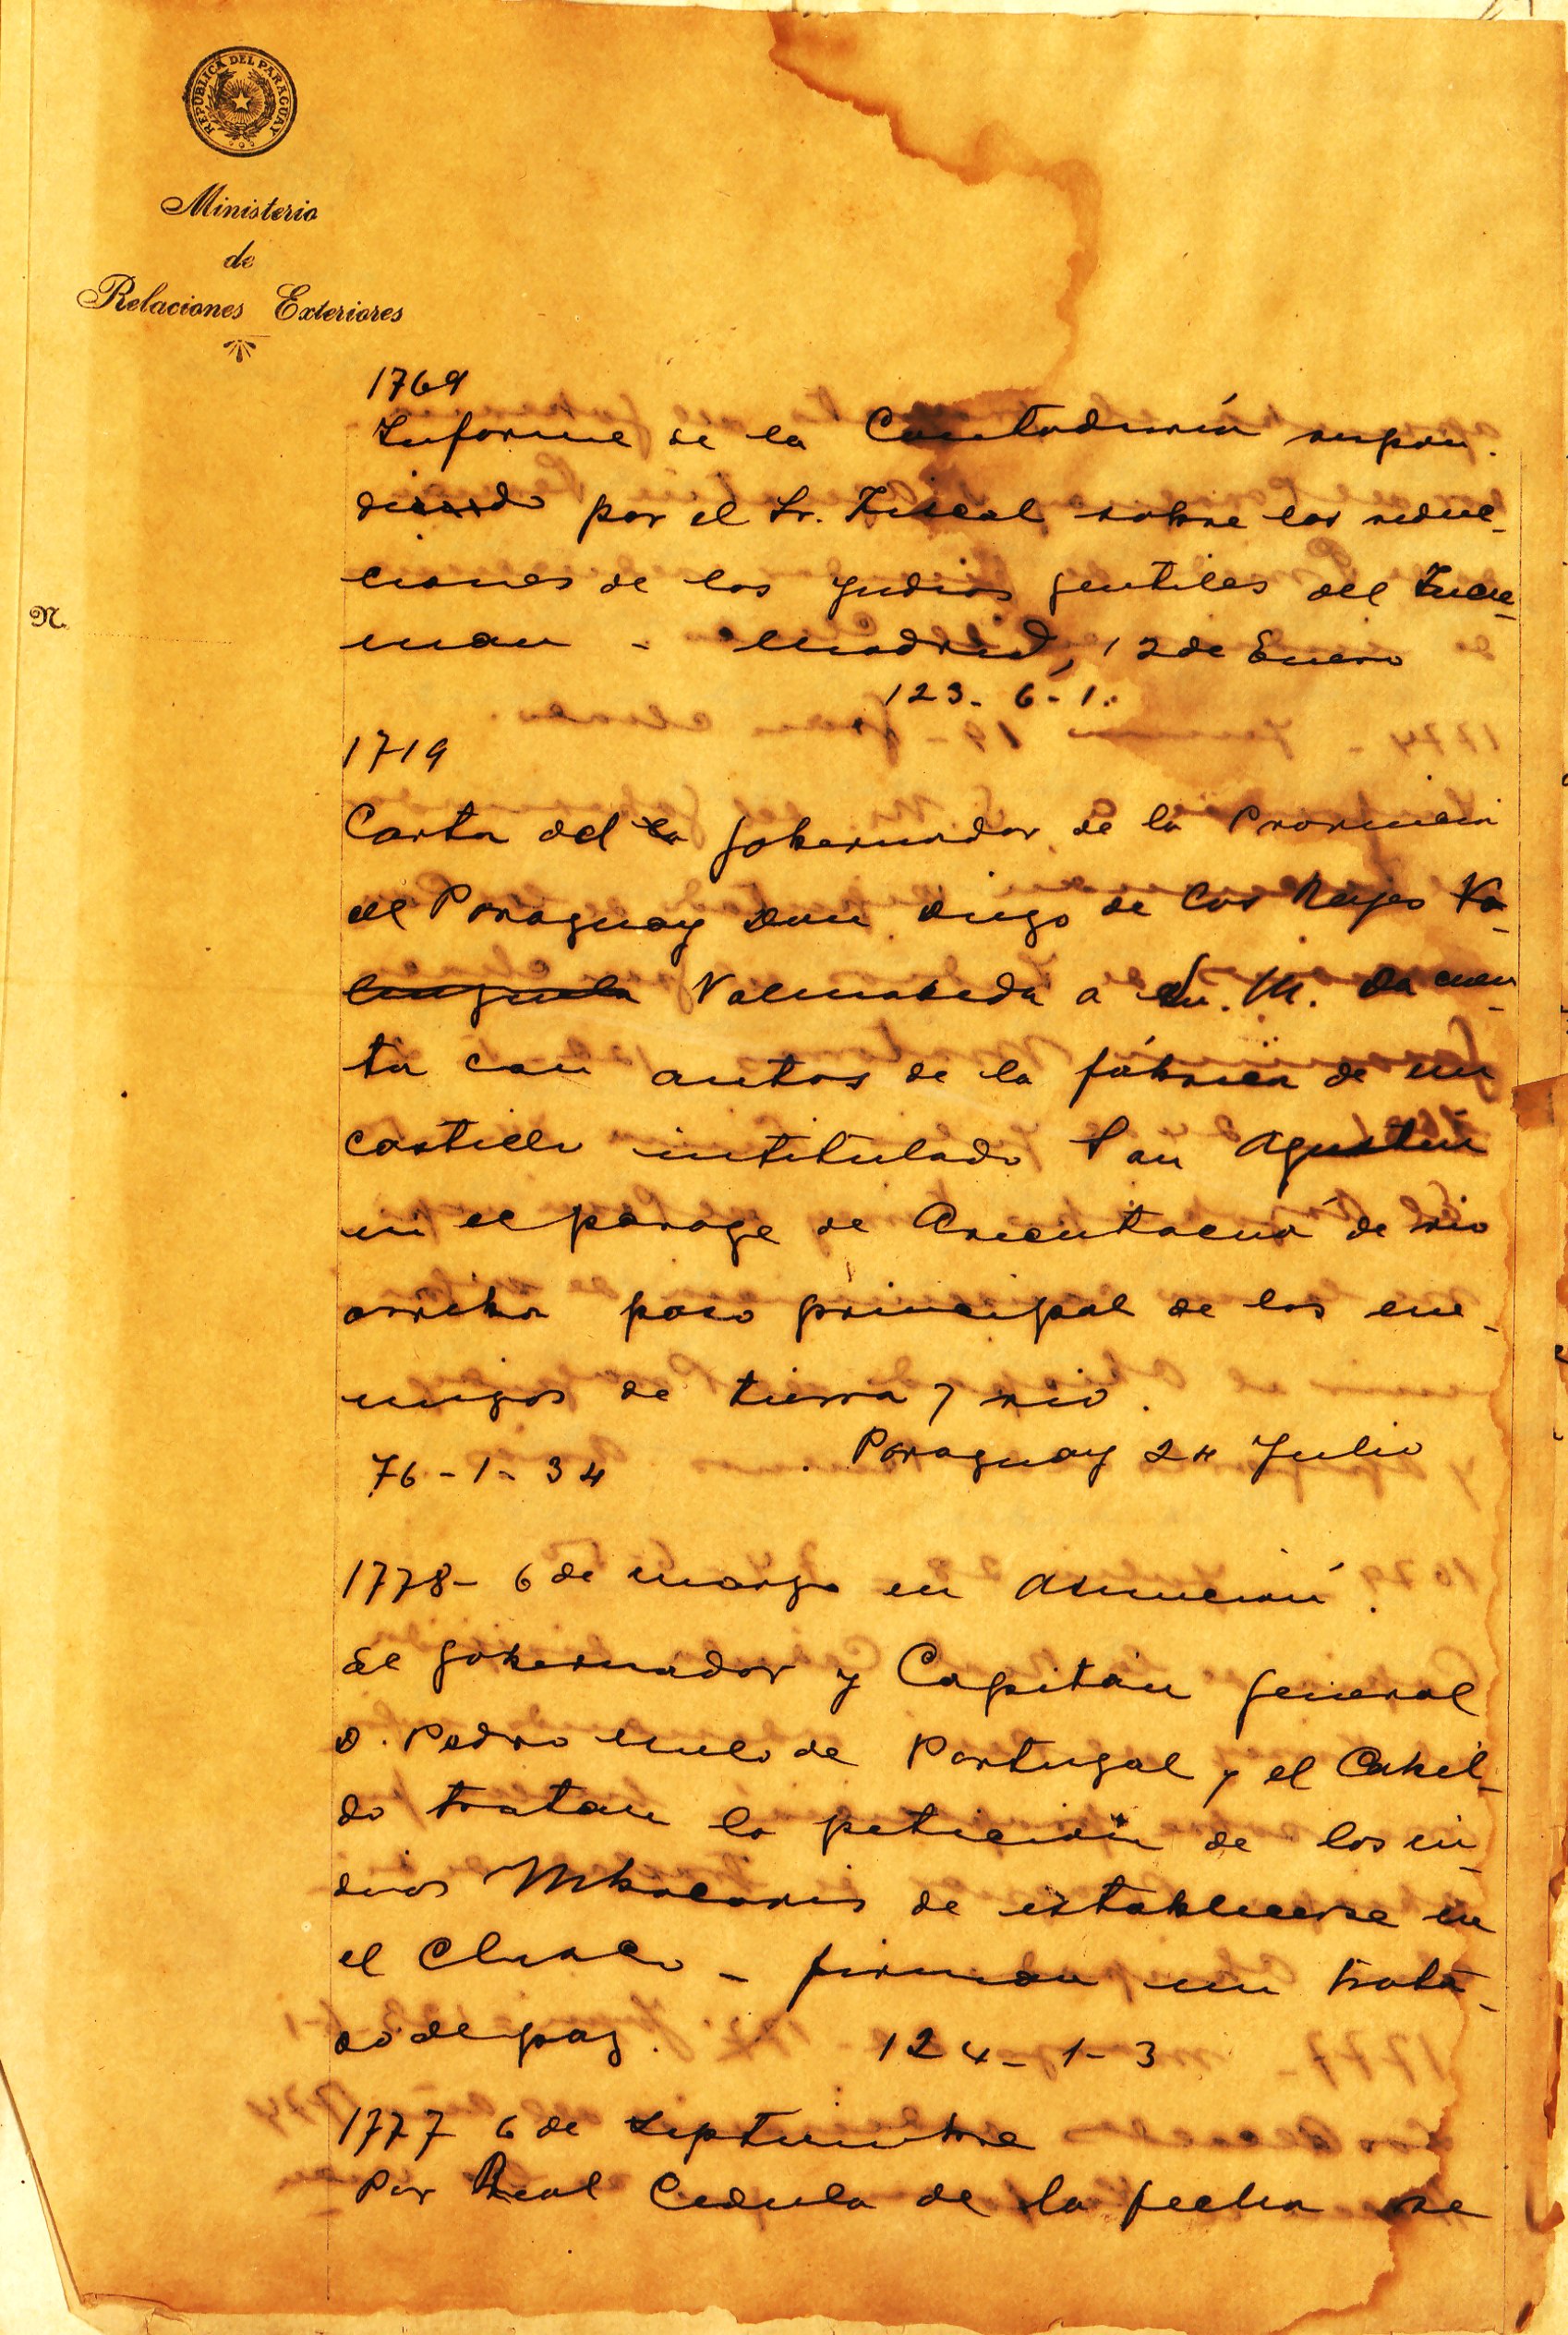 REPÚBLICA DEL PARAGUAY
Ministerio
de
Relaciones Exteriores
N.
1769
Informe de la Contaduría respon.
diendo por el Sr. Fiscal sobre las reduc-
ciones de los Yndios gentiles del Tucu-
man - Madrid, 12 de Enero
123- 6-1.
1719
Carta del gobernador de la Provincia
del Paraguay Don Diego de los Reyes Va-
Valmaseda a Su. M. Da cuen-
ta con autos de la fábrica de un
castillo intitulado San Agustin
en el parage de Arecutacuá de rio
arriba paso principal de los ene-
migos de tierra y rio.
76-1-34 Paraguay 24 Julio
1778- 6 de marzo en Asunción.
El gobernador y Capitán general
D. Pedro Melo de Portugal y el Cabil-
do tratan la petición de los in-
dios Mbocovis de establecerse en
el Chaco - firman un trata-
do de paz. 124-1-3
1777 6 de Septiembre
Por Real Cedula de la fecha se